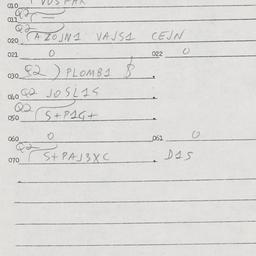 010
011 Q2
020 Q2 AZOJN1 VAJS1 CEJN
021 0 022 0
030 Q2 ) PLOMB1 8
040 Q2 JOSL1S
050 Q2 S+P1G+
060 0 061 0
070 Q2 S+PAJ3XC D1S